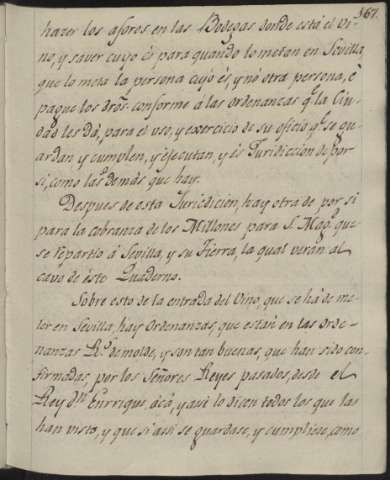 367.
hazer los aforos en las Bodegas donde está el Vi-
no, y saver cuyo és para quando lo metan en Sevilla
que lo meta la persona cuyo es, y no otra persona, é
pague los dros. conforme á las ordenanzas q. la Ciu-
dad les dá, para el uso, y exercicio de su oficio q. se gu-
ardan, y cumplen, y ejecutan, y és Juridiccion de por
si, como las demás que hay.
Despues de esta Juridicion, hay otra de por si
para la cobranza de los Millones para S. Magd. que
se repartio á Sevilla, y su Tierra, la qual verán al
cavo de éste Quaderno.
Sobre esto de la entrada del Vino, que se há de me-
ter en Sevilla, hay Ordenanzas, que están en las Orde-
nanzas Rs. de molde, y son tan buenas, que han sido con-
firmadas por los Señores Reyes pasados, desde el
Rey Dn. Enrrique, acá, y asi lo dicen todos los que las
han visto, y que si assi se guardase, y cumpliese, como